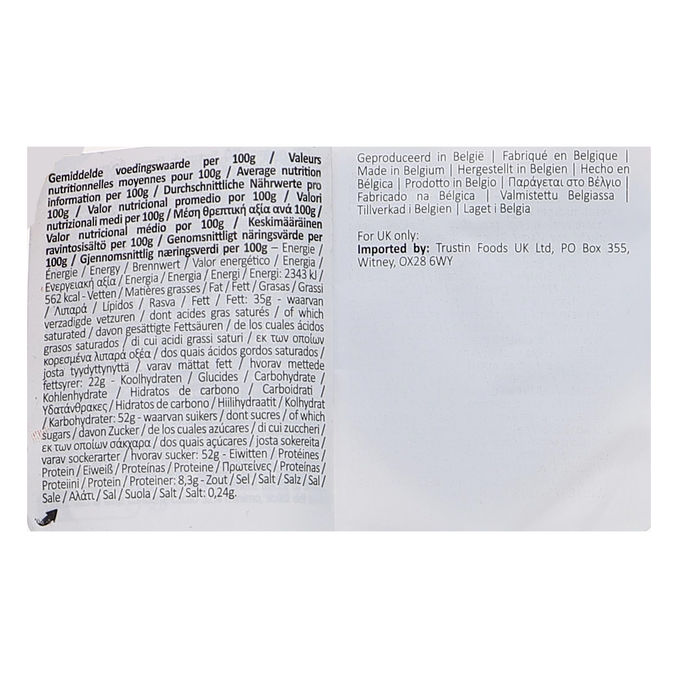 Gemiddelde voedingswaarde per 100g / Valeurs
nutritionnelles moyennes pour 100g / Average nutrition
information per 100g / Durchschnittliche Nährwerte pro
100g / Valor nutricional promedio por 100g / Valori
nutrizionali medi per 100g / Μέση θρεπτική αξία ανά 100g /
Valor nutricional médio por 100g / Keskimääräinen
ravintosisältö per 100g / Genomsnittligt näringsvärde per
100g / Gjennomsnittlig næringsverdi per 100g – Energie /
Énergie / Energy / Brennwert / Valor energético / Energia /
Ενεργειακή αξία / Energia / Energia / Energi / Energi: 2343 kJ /
562 kcal - Vetten / Matières grasses / Fat / Fett / Grasas / Grassi
/ Λιπαρά / Lípidos / Rasva / Fett / Fett: 35g - waarvan
verzadigde vetzuren / dont acides gras saturés / of which
saturated / davon gesättigte Fettsäuren / de los cuales ácidos
grasos saturados / di cui acidi grassi saturi / εκ των οποίων
κορεσμένα λιπαρά οξέα / dos quais ácidos gordos saturados /
josta tyydyttynyttä / varav mättat fett / hvorav mettede
fettsyrer: 22g - Koolhydraten / Glucides / Carbohydrate /
Kohlenhydrate / Hidratos de carbono / Carboidrati /
Υδατάνθρακες / Hidratos de carbono / Hiilihydraatit / Kolhydrat
/ Karbohydrater: 52g - waarvan suikers / dont sucres / of which
sugars / davon Zucker / de los cuales azúcares / di cui zuccheri /
εκ των οποίων σάκχαρα / dos quais açúcares / josta sokereita /
varav sockerarter / hvorav sucker: 52g - Eiwitten / Protéines /
Protein / Eiweiß / Proteínas / Proteine / Πρωτεΐνες / Proteínas /
Proteiini / Protein / Proteiner: 8,3g - Zout / Sel / Salt / Salz / Sal /
Sale / Αλάτι / Sal / Suola / Salt / Salt: 0,24g.
Geproduceerd in België | Fabriqué en Belgique |
Made in Belgium | Hergestellt in Belgien | Hecho en
Bélgica | Prodotto in Belgio | Παράγεται στο Βέλγιο |
Fabricado na Bélgica | Valmistettu Belgiassa |
Tillverkad i Belgien | Laget i Belgia
For UK only:
Imported by: Trustin Foods UK Ltd, PO Box 355,
Witney, OX28 6WY